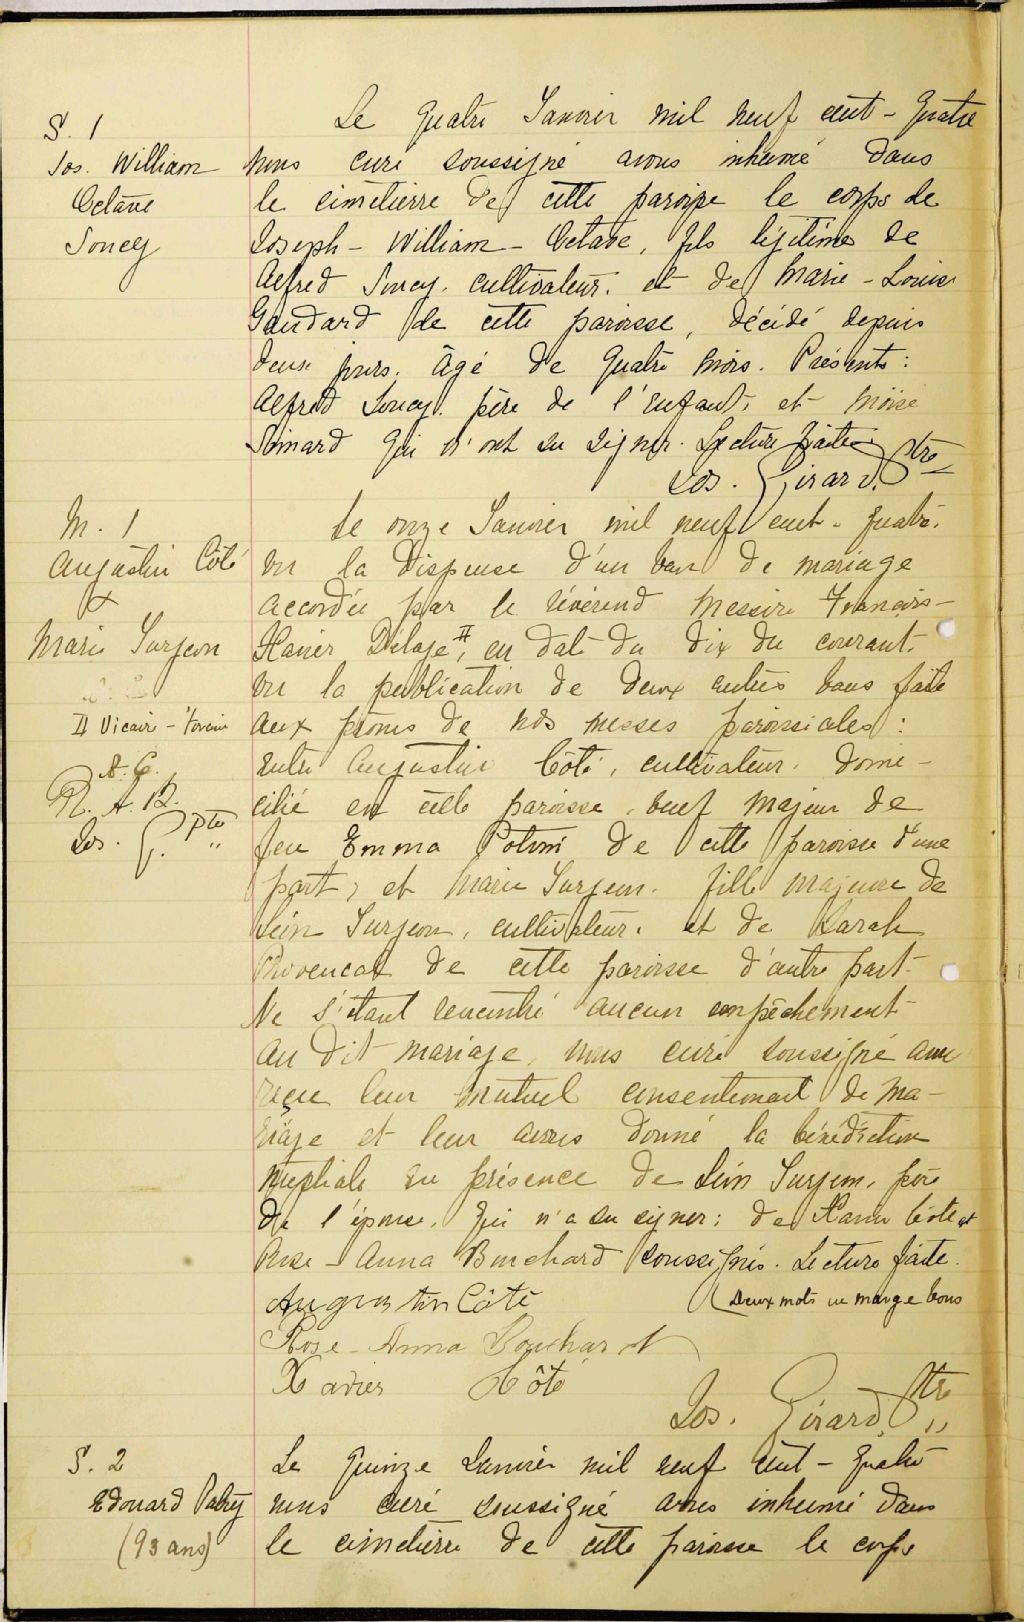 S. 1
Jos. William
Octave
Soucy
Le quatre Janvier mil neuf cent-quatre
nous curé soussigné avons inhumé dans
le cimetierre de cette paroisse le corps de
Joseph-William-Octave, fils légitime de
Alfred Soucy, cultivateur, et de Marie-Louise
Gaudard de cette paroisse, décédé depuis
deux jours, âgé de quatre mois. Présents:
Alfred Soucy, père de l'enfant, et Moïse
Simard qui n'ont su signer. Lecture faite.
Jos. Girard, Ptre
M. 1
Augustin Côté
&
Marie Surgeon
II Vicaire-forain
A. C.
R. A. B.
Jos. G. Ptre
Le onze Janvier mil neuf cent-quatre,
vu la dispense d'un ban de mariage
accordée par le révérend Messire François-
Xavier Delage, II en date du dix du courant,
vu la publication de deux autres bans faite
aux prônes de nos messes paroissiales:
entre Augustin Côté, cultivateur, domi-
cilié en cette paroisse, veuf majeur de
feu Emma Potvin de cette paroisse d'une
part, et Marie Surgeon, fille majeure de
Léon Surgeon, cultivateur, et de Sarah
Provencal de cette paroisse d'autre part.
Ne s'étant rencontré aucun empêchement
au dit mariage, nous curé soussigné avons
reçu leur mutuel consentement de ma-
riage et leur avons donné la bénédiction
nuptiale en présence de Léon Surgeon, père
de l'épouse, qui n'a su signer; de Xavier Côté et
Rose-Anna Bouchard soussignés. Lecture faite.
(Deux mots en marge bons
Augustin Côté
Rose-Anna Bouchard
Xavier Côté
Jos. Girard, Ptre
S. 2
Edouard Patry
(93 ans)
Le quinze Janvier mil neuf cent-quatre
nous curé soussigné avons inhumé dans
le cimetière de cette paroisse le corps